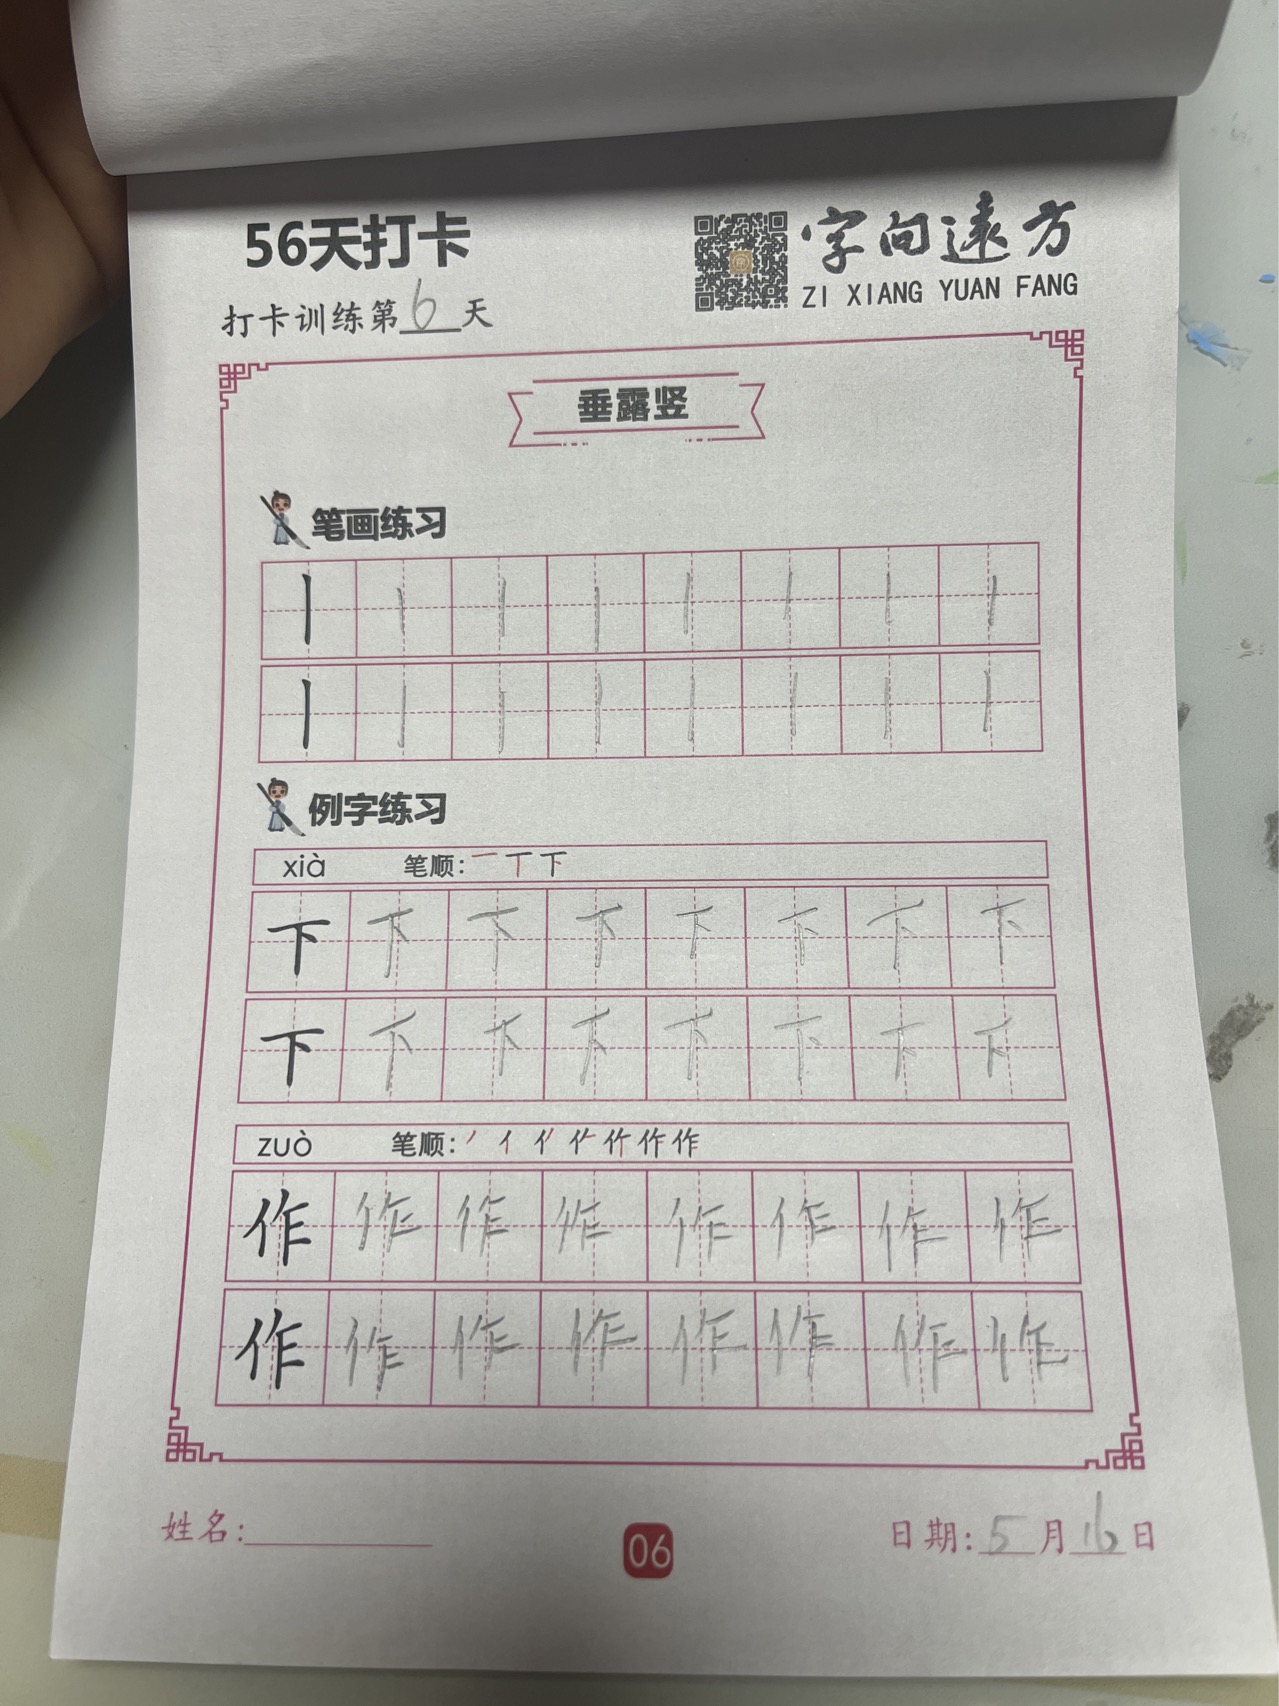 56天打卡
字向遠方
ZI XIANG YUAN FANG
打卡训练第6天
垂露竖
笔画练习
丨丨丨丨丨丨丨丨
丨丨丨丨丨丨丨丨
例字练习
xià 笔顺: 一 丅 下
下下下下下下下下
下下下下下下下下
zuò 笔顺: 丿 亻 作 作
作作作作作作作作
作作作作作作作作
姓名:
06
日期: 5月16日